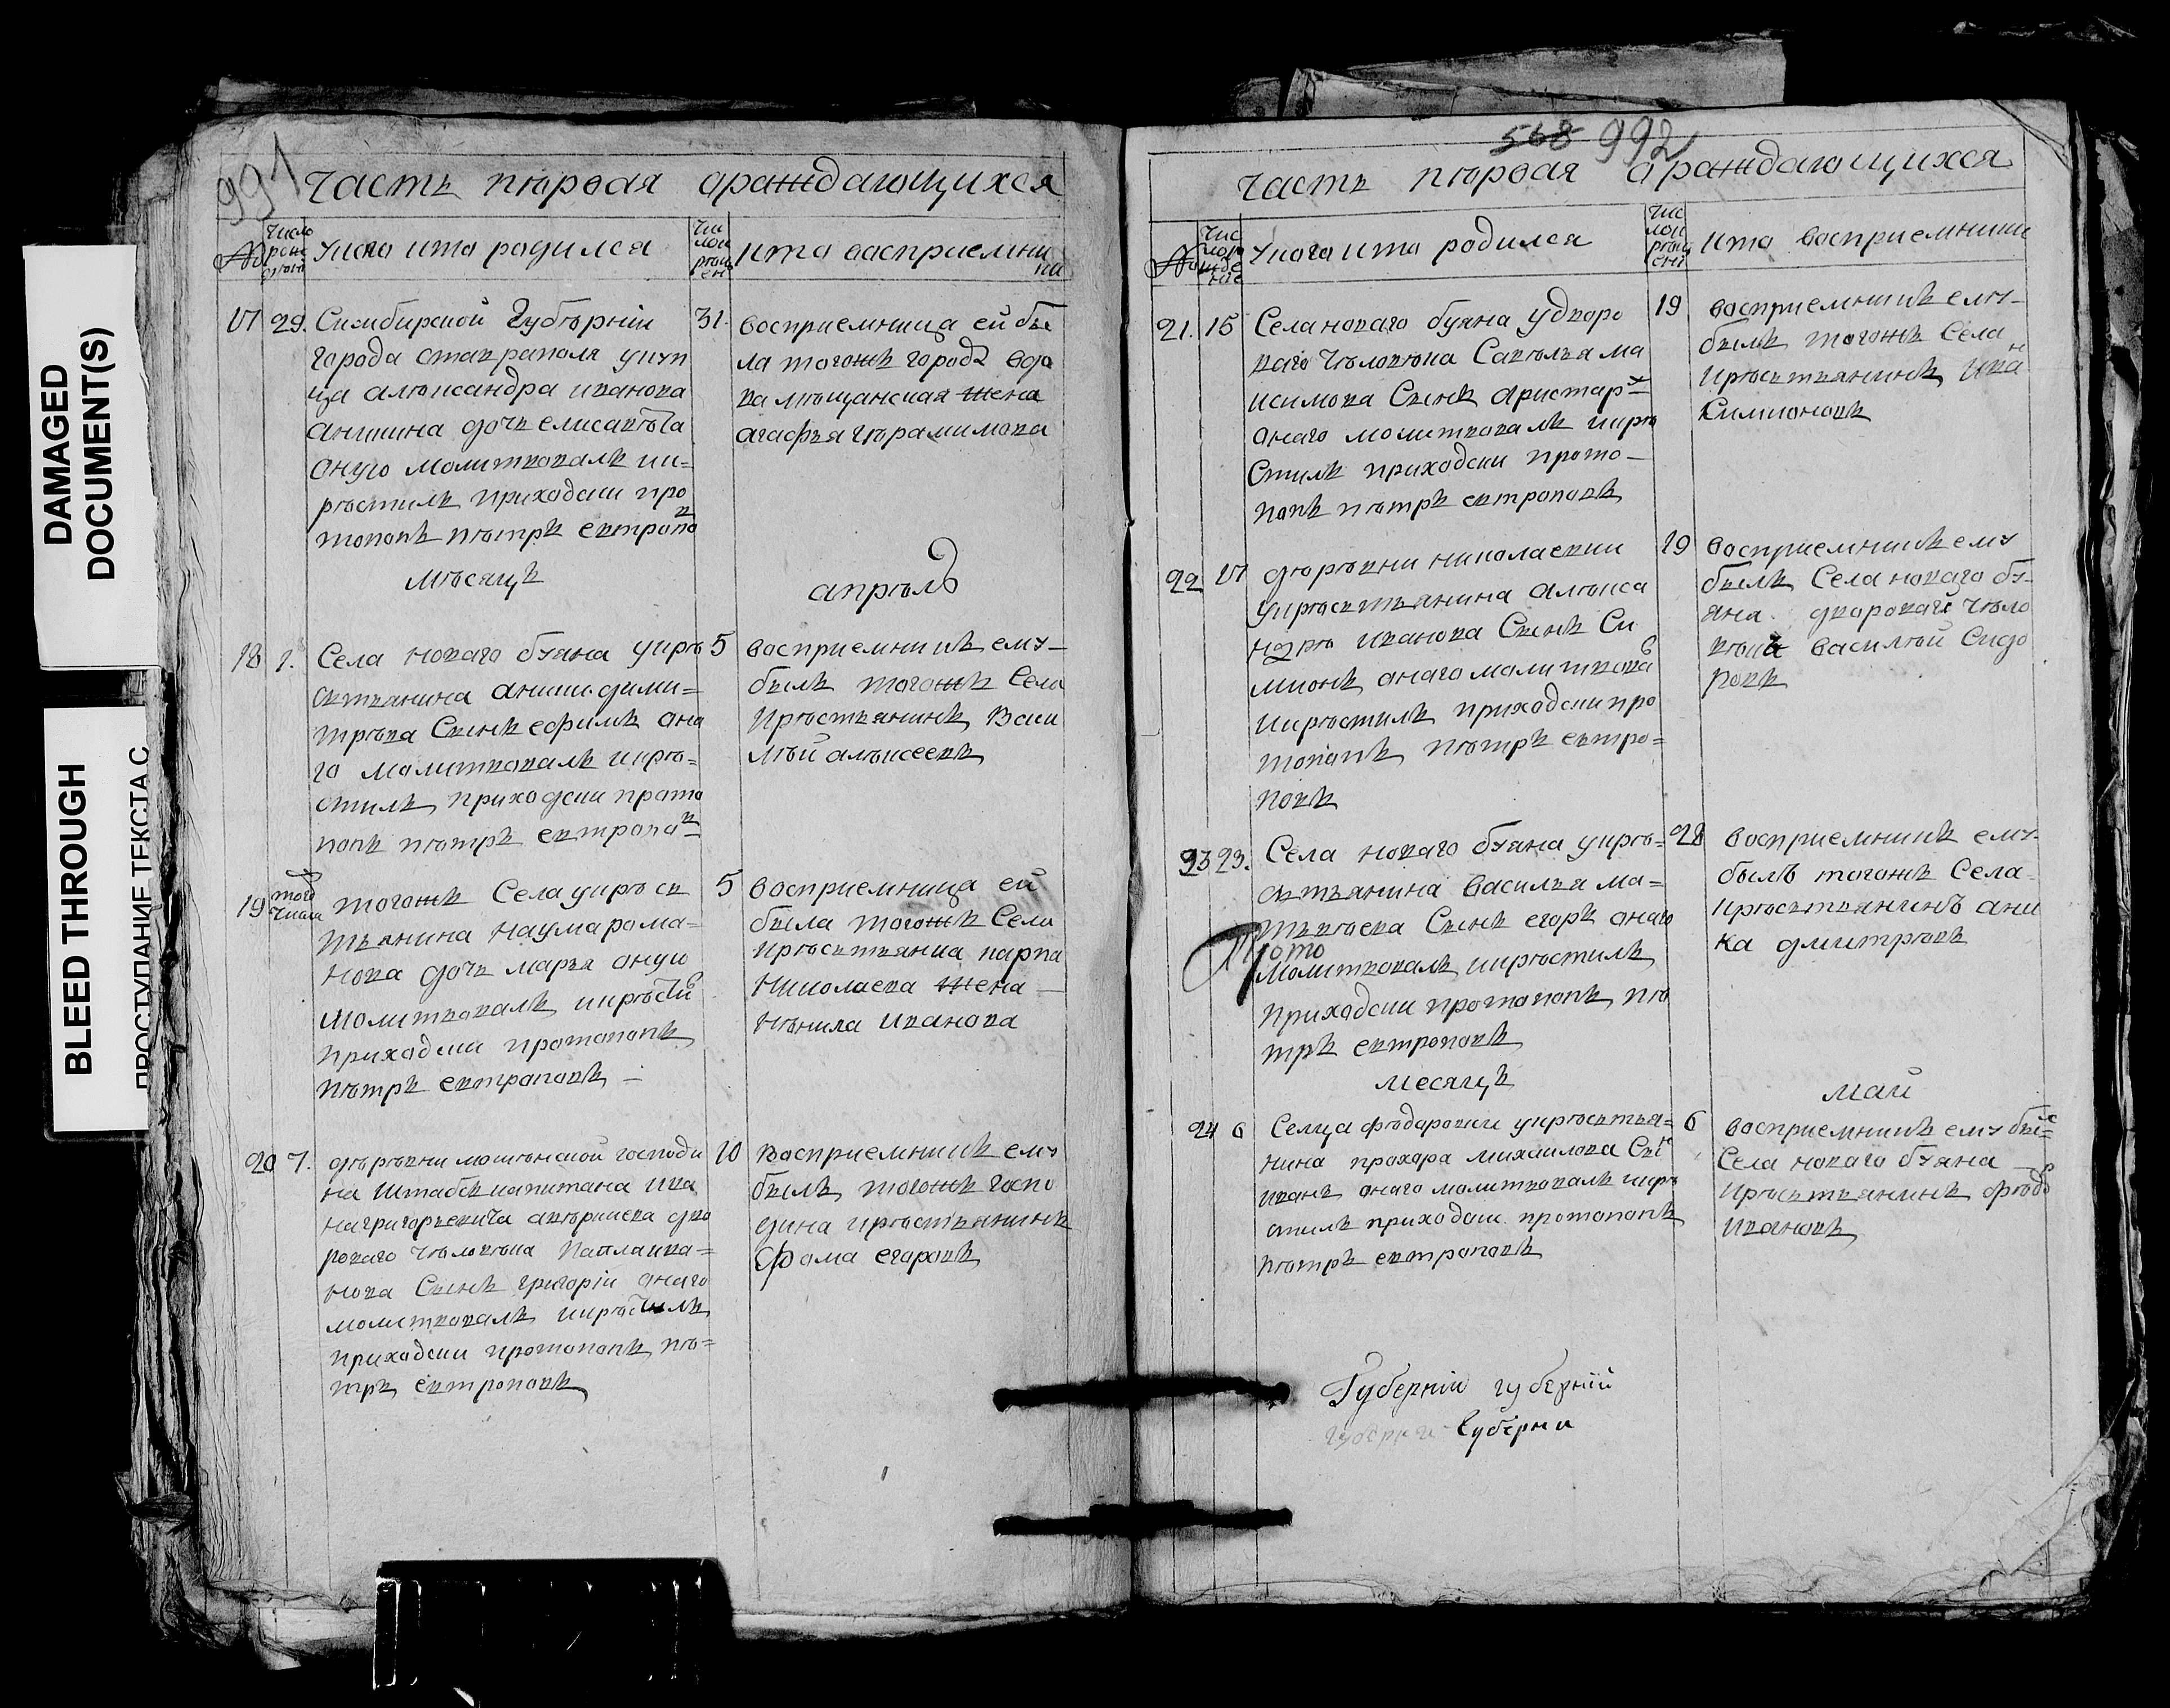 DAMAGED
DOCUMENT(S)
BLEED THROUGH
ПРОСТУПАНИЕ ТЕКСТА С
991
часть пѣрвая ораждающихся
№
число
рож
дѣни
укаго кто родился
чи
слои
крѣщ
ен
кто восприемни
ки
17 29. Симбирской Губѣрніи
города ставраполя укуп
ца алѣксандра иванова
аникина дочь елисавѣта
оную молитвовалъ ик=
рѣстилъ приходски про
топопъ пѣтръ евтропов
31. восприемница ей бы
ла тогожъ города вдо
ва мѣщанская жена
агафья гѣрасимова
мѣсяцъ апрѣль
18 1. Села новаго буяна укрѣ
стьянина аники дими=
трѣва Сынъ ефимъ она
го молитвовалъ икрѣ=
стилъ приходски прото
попъ пѣтръ евтропов
5 восприемникъ ему
былъ тогожъ Села
крѣстьянинъ Васи
лѣй алѣксеевъ
19 того
числа тогожъ Села укрѣст
тьянина наума рома=
нова дочь марья оную
молитвовалъ икрѣстил
приходски протопопъ
пѣтръ евтроповъ
5 восприемница ей
была тогожъ Села
крѣстьянина карпа
николаева жена
нѣнила иванова
20 7. дѣрѣвни мошѣнской господи
на штабскапитана ива
на григорьевича авѣркиева дво
роваго чѣловѣка павла ива=
нова Сынъ григоріи онаго
молитвовалъ икрѣстилъ
приходски протопопъ пѣ=
тръ евтроповъ
10 восприемникъ ему
былъ тогожъ госпо
дина крѣстьянинъ
фома егоровъ
568 992
часть пѣрвая ораждающихся
№
чис
лоро
жде
ние
укаго кто родился
чис
лои
крѣщ
ени
кто восприемники
21. 15 Села новаго буяна удворо
ваго чѣловѣка Савѣлья ма
ксимова Сынъ аристарх
онаго молитвовалъ икрѣ
стилъ приходски прото=
попъ пѣтръ евтроповъ
19 восприемникъ ему
былъ тогожъ Села
крѣстьянинъ иван
Симионовъ
22 17 дѣрѣвни николаевки
укрѣстьянина алѣкса
ндра иванова Сынъ Си
мионъ онаго молитвовал
икрѣстилъ приходски про
топопъ пѣтръ евтро=
повъ
19 восприемникъ ему
былъ Села новаго бу
яна двороваго чѣло
вѣка василѣй Сидо
ровъ
23 23. Села новаго буяна укрѣ=
стьянина василья ма=
твѣева Сынъ егоръ онаго
Прото
молитвовалъ икрѣстилъ
приходски протопопъ пѣ
тръ евтроповъ
28 восприемникъ ему
былъ тогожъ Села
крѣстьянинъ ани
ка дмитрѣвъ
месяцъ май
24 6 Селца фѣдоровки укрѣстья=
нина прохора михаилова Сын
иванъ онаго молитвовалъ икрѣ
стилъ приходски протопопъ
пѣтръ евтроповъ
6 восприемникъ ему был
Села новаго буяна
крѣстьянинъ фѣдор
ивановъ
Губерніи губерніи
губерни губерни